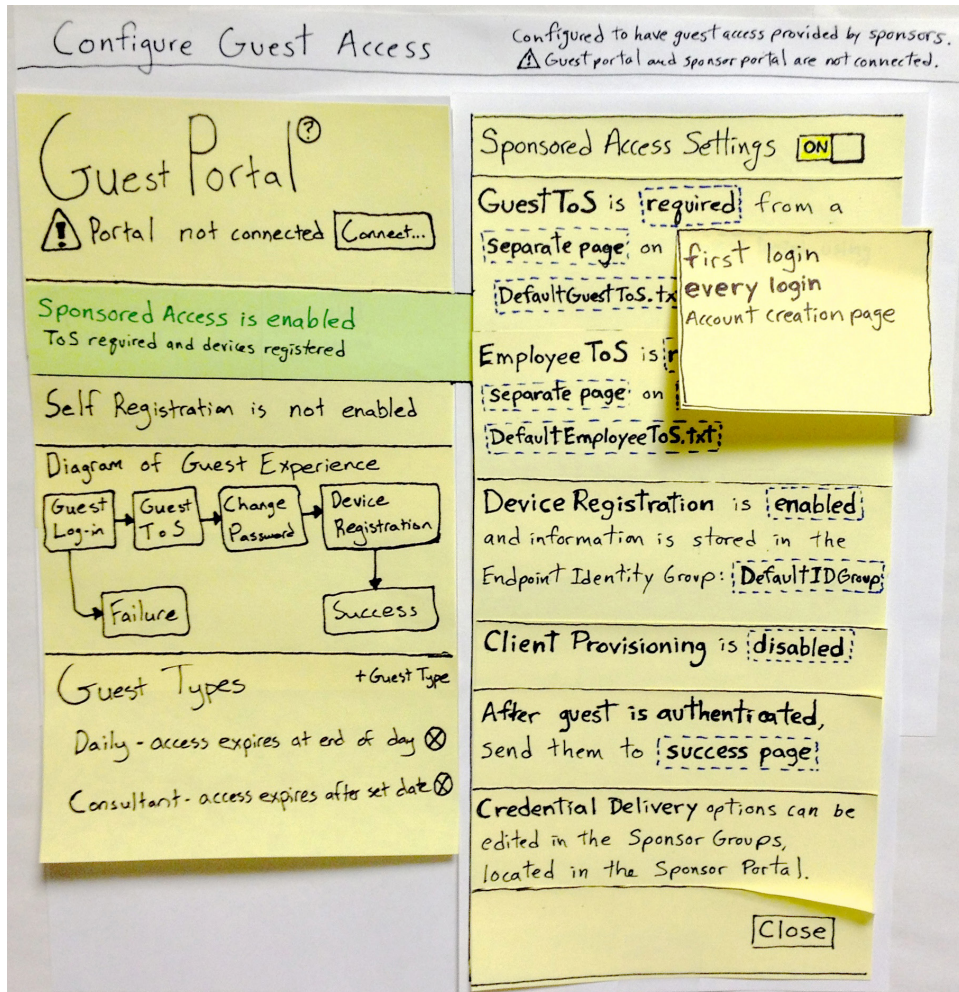 Configure Guest Access
Configured to have guest access provided by sponsors.
⚠ Guest portal and sponsor portal are not connected.
Guest Portal ?
⚠ Portal not connected Connect...
Sponsored Access is enabled
ToS required and devices registered
Self Registration is not enabled
Diagram of Guest Experience
Guest
Log-in
Guest
ToS
Change
Password
Device
Registration
Failure
Success
Guest Types
+ Guest Type
Daily - access expires at end of day ⊗
Consultant - access expires after set date ⊗
Sponsored Access Settings ON
Guest ToS is required from a
separate page on using
DefaultGuestToS.tx
first login
every login
Account creation page
Employee ToS is r
separate page on
DefaultEmployeeToS.txt
Device Registration is enabled
and information is stored in the
Endpoint Identity Group: DefaultIDGroup
Client Provisioning is disabled
After guest is authenticated,
send them to success page
Credential Delivery options can be
edited in the Sponsor Groups,
located in the Sponsor Portal.
Close